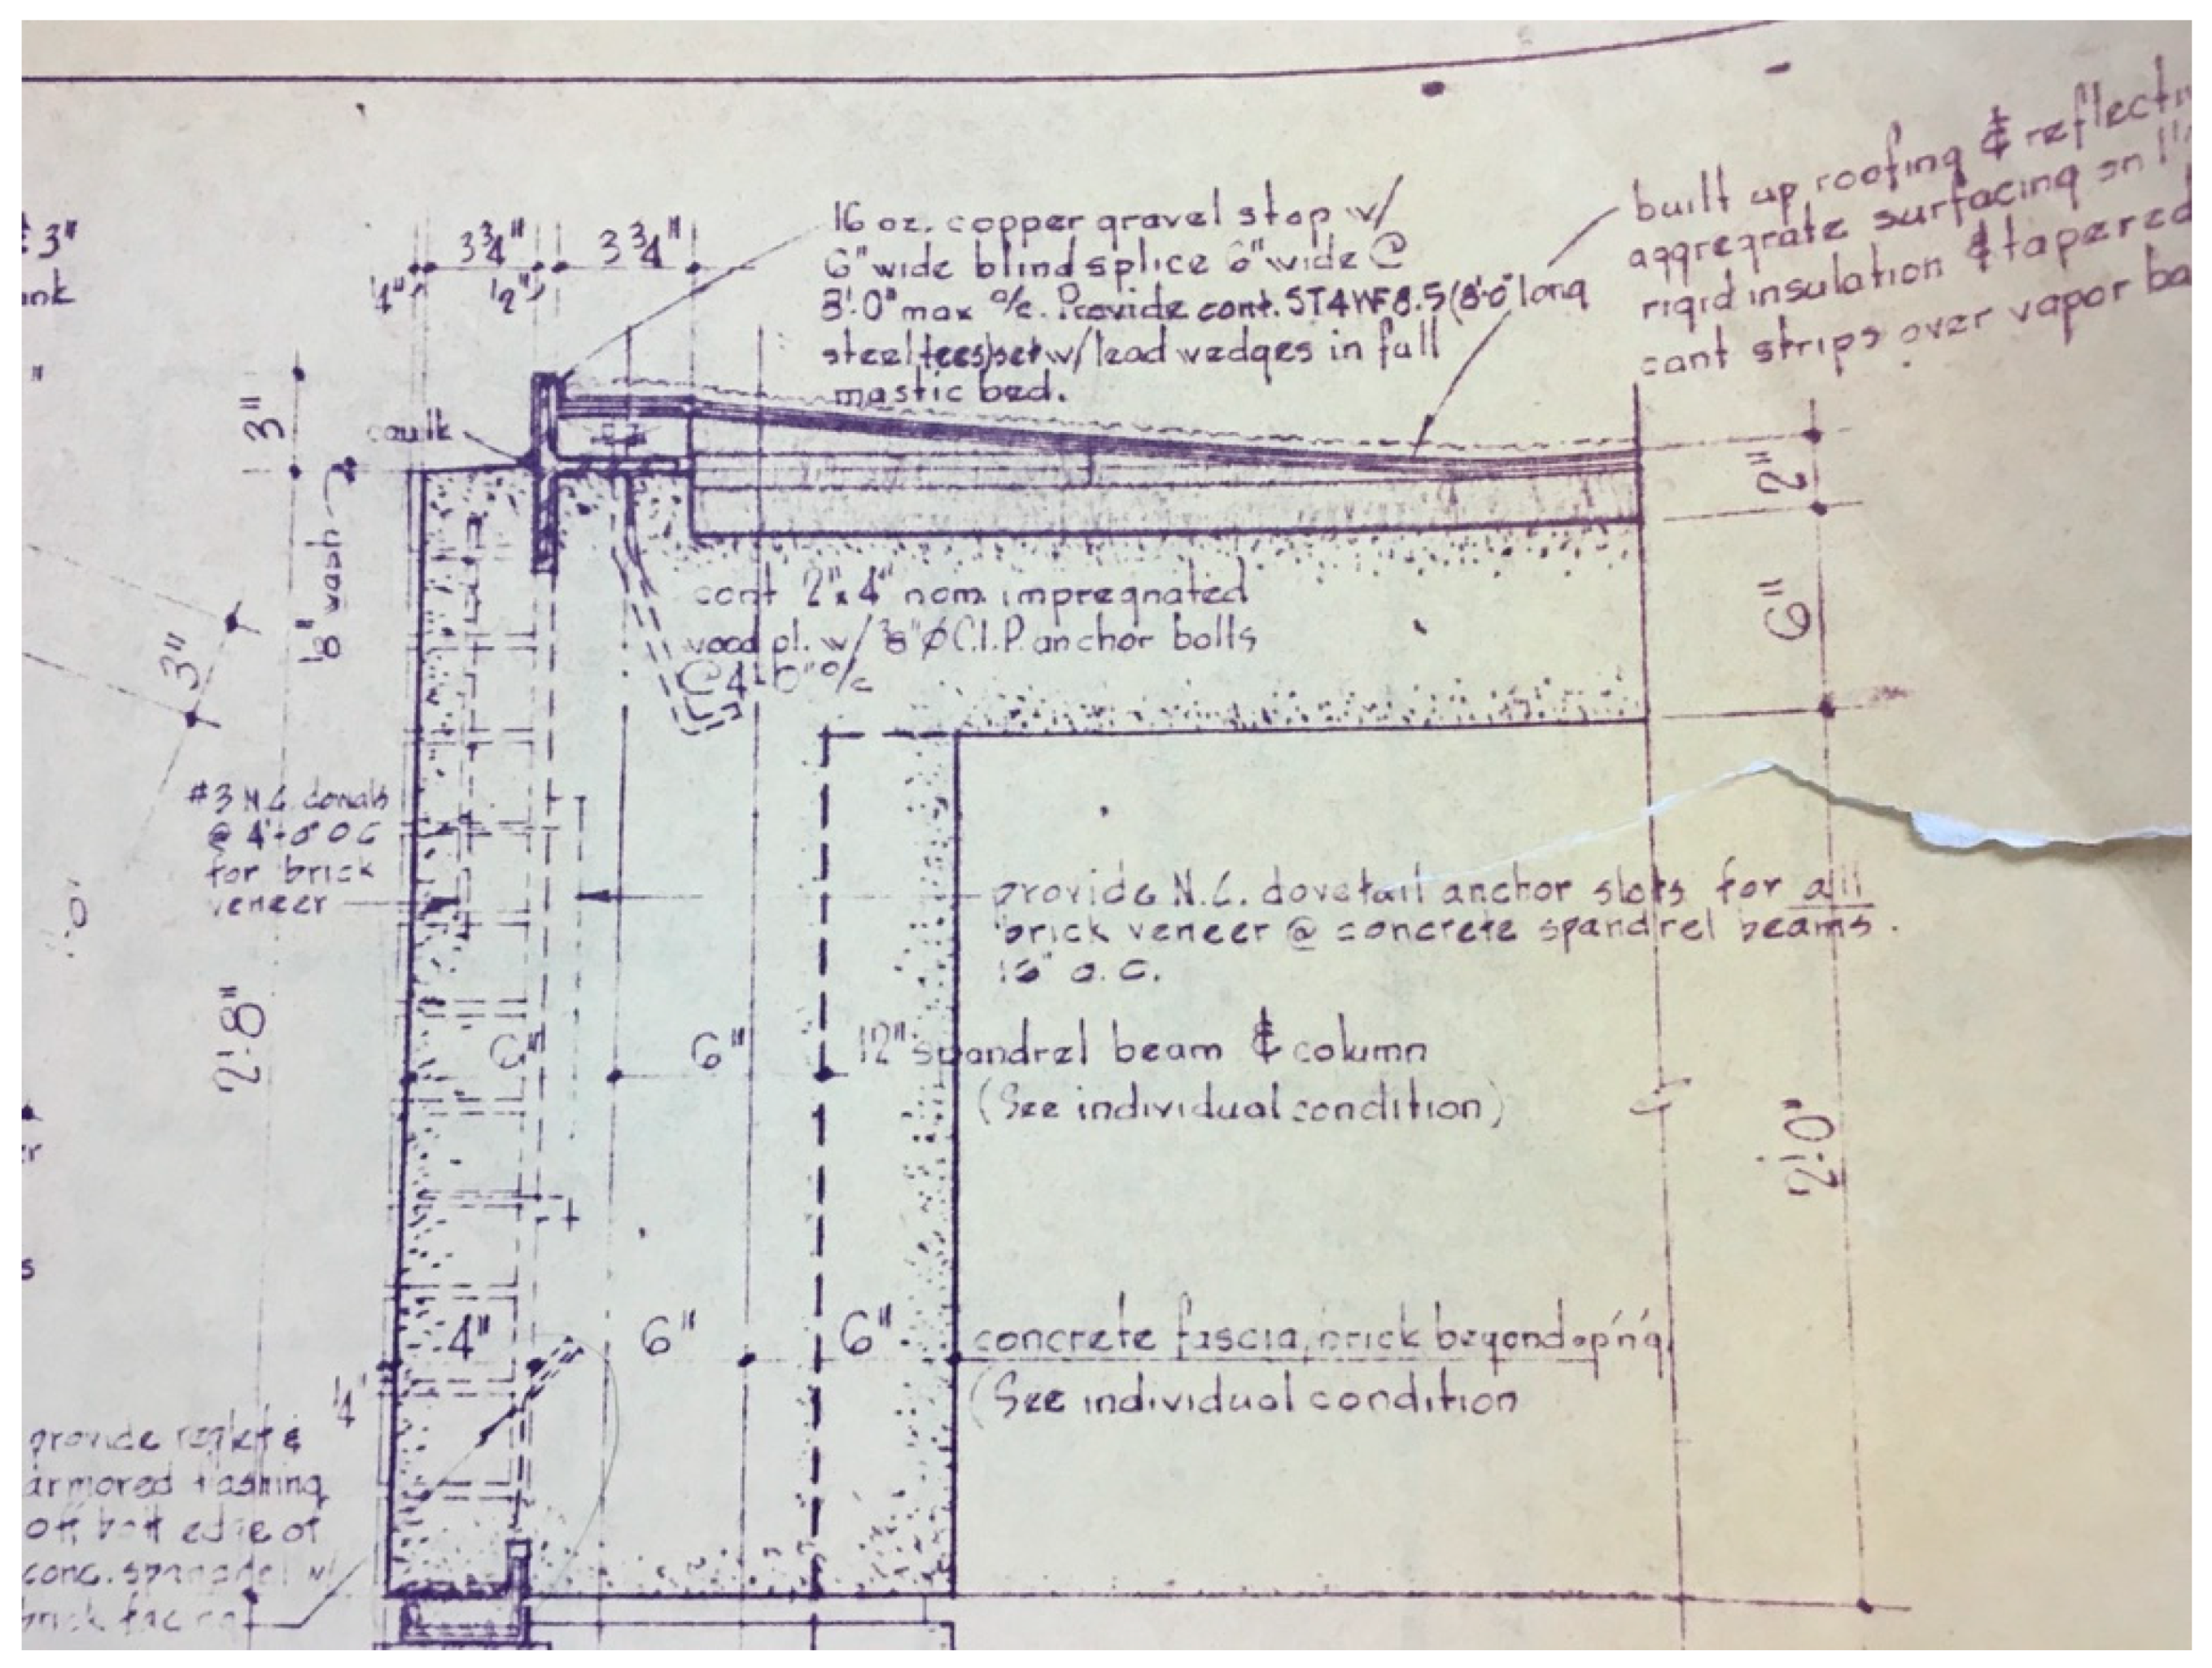 3"
3 3/4"
3 3/4"
1/4"
1/2"
16 oz. copper gravel stop w/
6" wide blind splice 6" wide @
8'.0" max o/c. Provide cont. ST4WF8.5 (8'-0" long
steel tees) set w/ lead wedges in full
mastic bed.
built up roofing & reflect
aggregrate surfacing on 1
rigid insulation & tapered
cant strips over vapor ba
3"
caulk
1/8" wash
3"
2"
6"
cont 2"x 4" nom. impregnated
wood pl. w/ 3/8" Ø C.I.P. anchor bolts
@ 4'-0" o/c
#3 N.C.
@ 4'-0" OC
for brick
veneer
provide N.C. dovetail anchor slots for all
brick veneer @ concrete spandrel beams.
16" o.c.
2'.8"
6"
6"
12" spandrel beam & column
(See individual condition)
2'.0"
4"
6"
6"
concrete fascia, brick beyond op'n'g.
(See individual condition
1/4"
provide reglet &
armored flashing
off bott edge of
conc. spandrel w/
brick facing